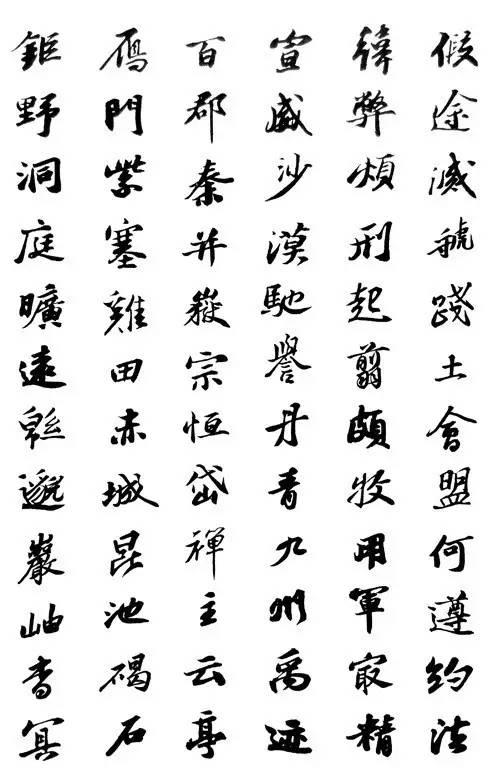 假途滅虢踐土會盟何遵約法
韓弊煩刑起翦頗牧用軍冣精
宣威沙漠馳譽丹青九州禹迹
百郡秦并嶽宗恒岱禪主云亭
鴈門紫塞雞田赤城昆池碣石
鉅野洞庭曠遠緜邈巖岫杳冥